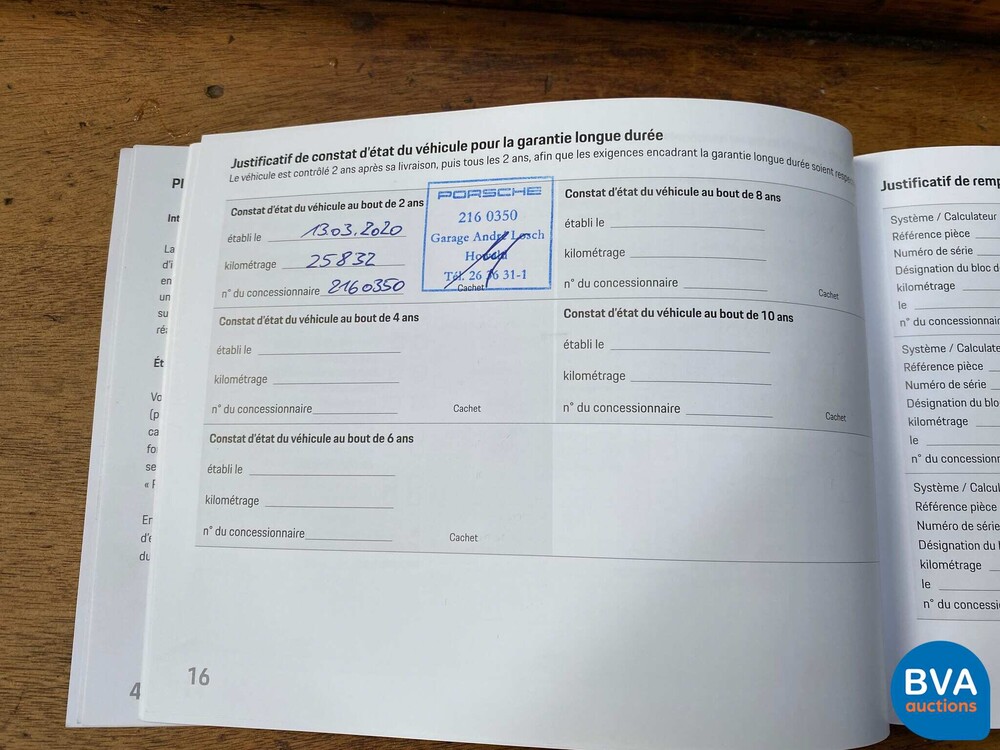 Justificatif de constat d'état du véhicule pour la garantie longue durée
Le véhicule est contrôlé 2 ans après sa livraison, puis tous les 2 ans, afin que les exigences encadrant la garantie longue durée soient
Constat d'état du véhicule au bout de 2 ans
établi le 13.03.2020
kilométrage 25832
n° du concessionnaire 2160350
PORSCHE
216 0350
Garage André Losch
Howald
Tél. 26 16 31-1
Cachet
Constat d'état du véhicule au bout de 4 ans
établi le
kilométrage
n° du concessionnaire
Cachet
Constat d'état du véhicule au bout de 6 ans
établi le
kilométrage
n° du concessionnaire
Cachet
Constat d'état du véhicule au bout de 8 ans
établi le
kilométrage
n° du concessionnaire
Cachet
Constat d'état du véhicule au bout de 10 ans
établi le
kilométrage
n° du concessionnaire
Cachet
16
Pl
Int
La
d'i
en
un
su
ré
Ét
Vo
(p
ca
fo
se
« F
En
d'é
du
4
Justificatif de remp
Système / Calculateur
Référence pièce
Numéro de série
Désignation du bloc d
kilométrage
le
n° du concessionnair
Système / Calculate
Référence pièce
Numéro de série
Désignation du blo
kilométrage
le
n° du concession
Système / Calcul
Référence pièce
Numéro de série
Désignation du
kilométrage
le
n° du concessi
BVA
auctions